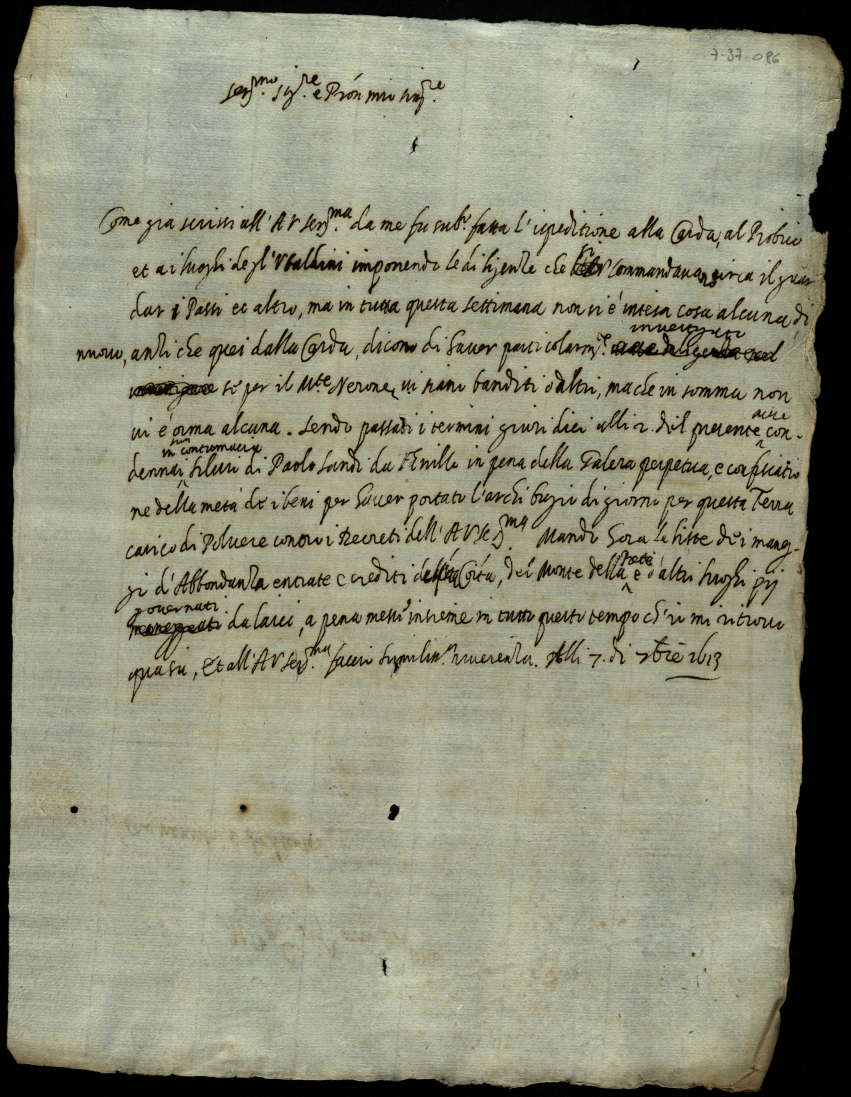 7-37-086
Ser.mo Sig.re e Pròn mio sing.re
Come già scrissi all'A V Ser.ma da me fu sub.o fatta l'ispeditione alla Carda, al Piobico
et a i luoghi degl'Ubaldini imponendo le diligenze che commandava circa il guar
dar i Passi et altro, ma in tutta questa settimana non si è intesa cosa alcuna di
nuovo, anzi che quei dalla Carda, dicono di haver particolarm.te investigato
se per il M.te Nerone vi siano banditi o altri, ma che in somma non
vi è orma alcuna. Sendo passati i termini giuridici alli 2 del presente con-
dennai in contumacia Silvio di Paolo Sandi da in pena della Galera perpetua, e confiscatio
ne della metà de i beni per haver portato l'archibugio di giorno per questa Terra
carico di Polvere contro i Decreti dell'A V Ser.ma Mando hora le liste dei maneg-
gi d'Abbondanza entrate e crediti Co.ità, del Monte della Pietà e d'altri luoghi pij
governati da laici, a pena messi insieme in tutto questo tempo ch'io mi ritrovo
quasù, Et all'A V Ser.ma faccio humiliss.a riverenza. Alli 7. di 7bre 1613